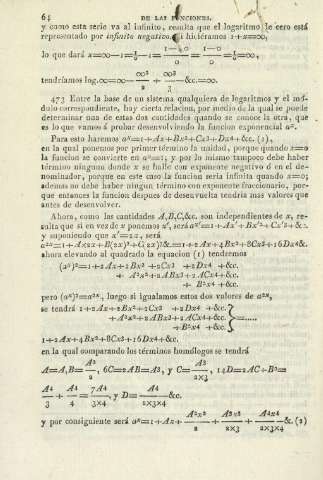 64 DE LAS FUNCIONES.
y como esta serie va al infinito, resulta que el logaritmo de cero está
representado por infinito negativo. Si hiciéramos 1+x=∞,
lo que dará x=∞-1= 1/0 -1= (1-0)/0 = (1-0)/0 = 1/0 =∞,
tendríamos log.∞=∞- ∞²/2 + ∞³/3 -&c.=∞.
473 Entre la base de un sistema qualquiera de logaritmos y el mó-
dulo correspondiente, hay cierta relacion, por medio de la qual se puede
determinar una de estas dos cantidades quando se conoce la otra, que
es lo que vamos á probar desenvolviendo la funcion exponencial aˣ.
Para esto haremos aˣ=1+Ax+Bx²+Cx³+Dx⁴+&c. (1),
en la qual ponemos por primer término la unidad, porque quando x=0
la funcion se convierte en a⁰=1; y por lo mismo tampoco debe haber
término ninguno donde x se halle con exponente negativo ó en el de-
nominador, porque en este caso la funcion seria infinita quando x=0;
ademas no debe haber ningun término con exponente fraccionario, por-
que entonces la funcion despues de desenvuelta tendria mas valores que
antes de desenvolver.
Ahora, como las cantidades A,B,C,&c. son independientes de x, re-
sulta que si en vez de x ponemos x', será aˣ'=1+Ax'+Bx'²+Cx'³+&c.
y suponiendo que x'=2x, será
a²ˣ=1+A(2x)+B(2x)²+C(2x)³&.=1+2Ax+4Bx²+8Cx³+16Dx⁴&.
ahora elevando al quadrado la equacion (1) tendremos
(aˣ)²=1+2Ax+2Bx²+2Cx³ +2Dx⁴ +&c.
+ A²x²+2ABx³+2ACx⁴+&c.
+ B²x⁴ +&c.
pero (aˣ)²=a²ˣ, luego si igualamos estos dos valores de a²ˣ,
se tendrá 1+2Ax+2Bx²+2Cx³ +2Dx⁴ +&c.
+A²x²+2ABx³+2ACx⁴+&c. }=.....
+B²x⁴ +&c.
1+2Ax+4Bx²+8Cx³+16Dx⁴+&c.
en la qual comparando los términos homólogos se tendrá
A=A, B= A²/2, 6C=2AB=A³, y C= A³/2×3, 14D=2AC+B²=
A⁴/3 + A⁴/4 = 7A⁴/3×4, y D= A⁴/2×3×4 &c.
y por consiguiente será aˣ=1+Ax+ A²x²/2 + A³x³/2×3 + A⁴x⁴/2×3×4 &. (2)